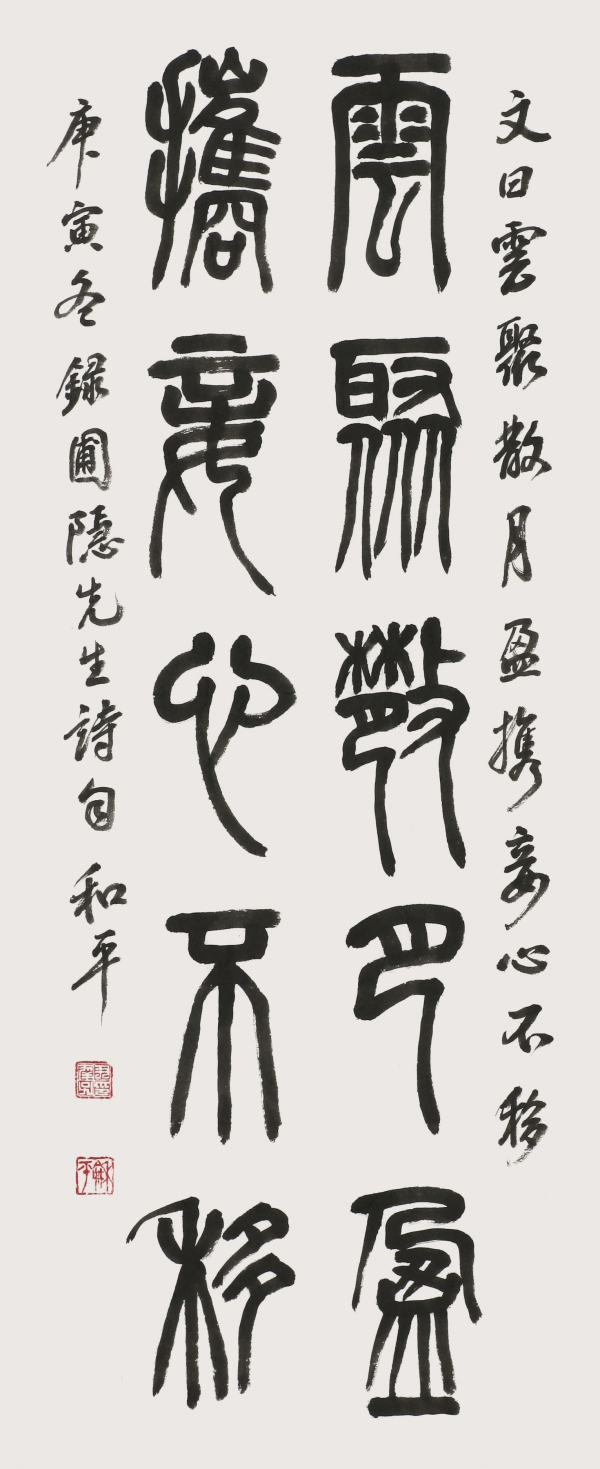 文曰雲聚散月盈携妾心不移
雲聚散月盈
攜妾心不移
庚寅冬録圃隱先生詩句和平
龢平